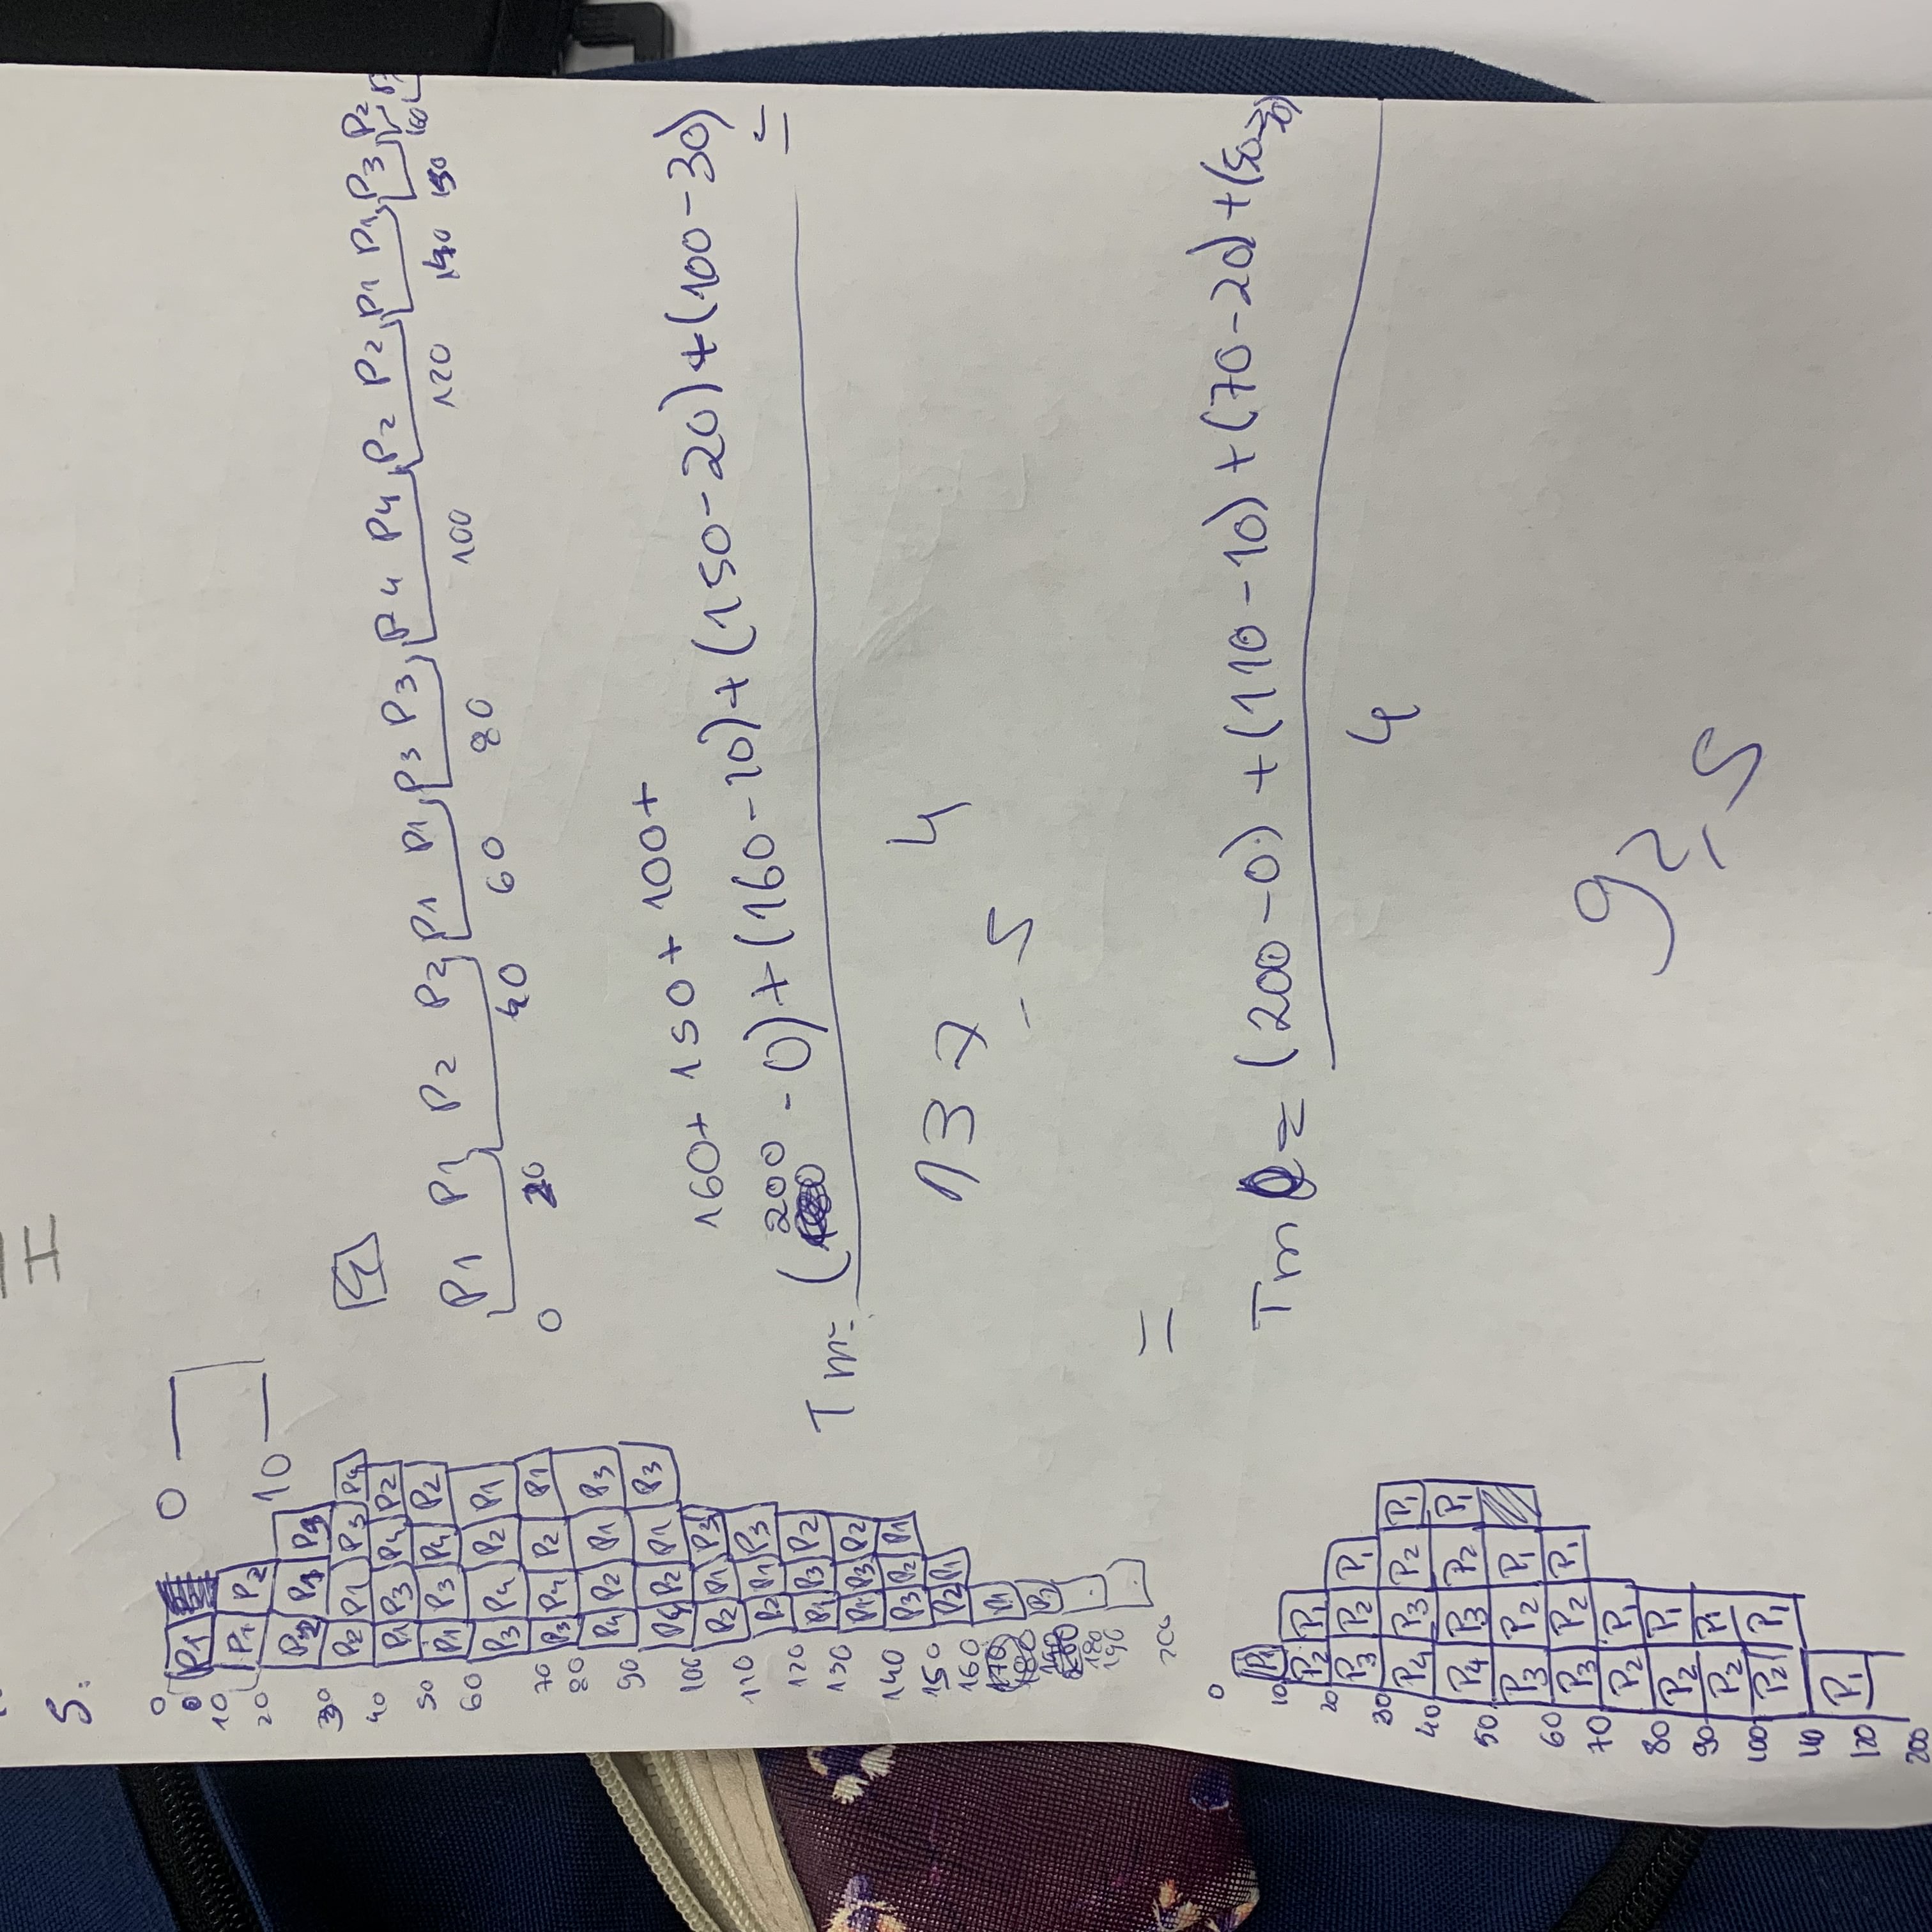 5.
0
0 P1
10 P1 P2
20 P2 P1 P3
30 P2 P1 P3 P4
40 P1 P3 P4 P2
50 P1 P3 P4 P2
60 P3 P4 P2 P1
70 P3 P4 P2 P1
80 P4 P2 P1 P3
90 P4 P2 P1 P3
100 P2 P1 P3
110 P2 P1 P3
120 P1 P3 P2
130 P1 P3 P2
140 P3 P2 P1
150 P2 P1
160 P1
170
180
190
180
190
200
0
10
P1 P1 P2 P2 P1 P1 P3 P3 P4 P4 P2 P2 P1 P1 P3 P2
0 20 40 60 80 100 120 140 150 160
160+ 150+ 100+
Tm= (200 - 0)+(160-10)+(150-20)+(100-30) =
4
137,5
=
0
P1
10 P2 P1
20 P3 P2 P1
30 P4 P3 P2 P1
40 P4 P3 P2 P1
50 P3 P2 P1
60 P3 P2 P1
70 P2 P1
80 P2 P1
90 P2 P1
100 P2 P1
110 P1
120
200
Tm = (200-0) +(110-10)+(70-20)+(50-30)
4
92,5